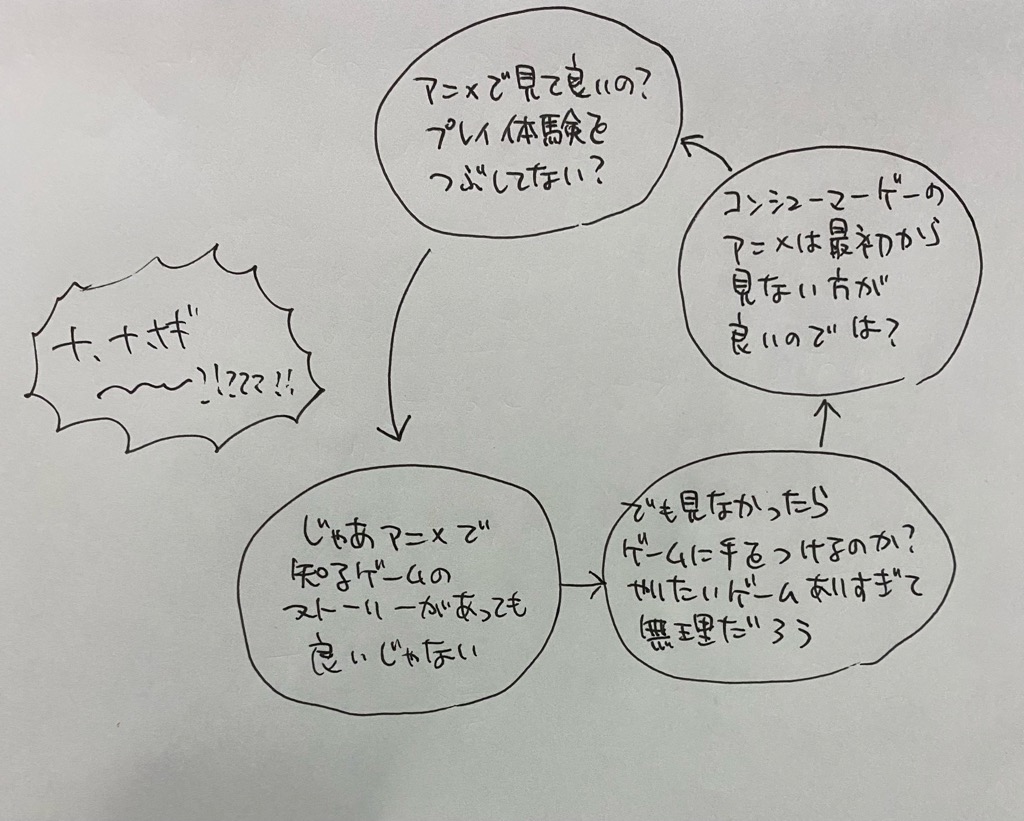 アニメで見て良いの?
プレイ体験を
つぶしてない?
コンシューマーゲーの
アニメは最初から
見ない方が
良いのでは?
ナ、ナ、ナギ
〜〜〜?!????!!
じゃあアニメで
知るゲームの
ストーリーがあっても
良いじゃない
でも見なかったら
ゲームに手をつけるのか?
やりたいゲームありすぎて
無理だろう